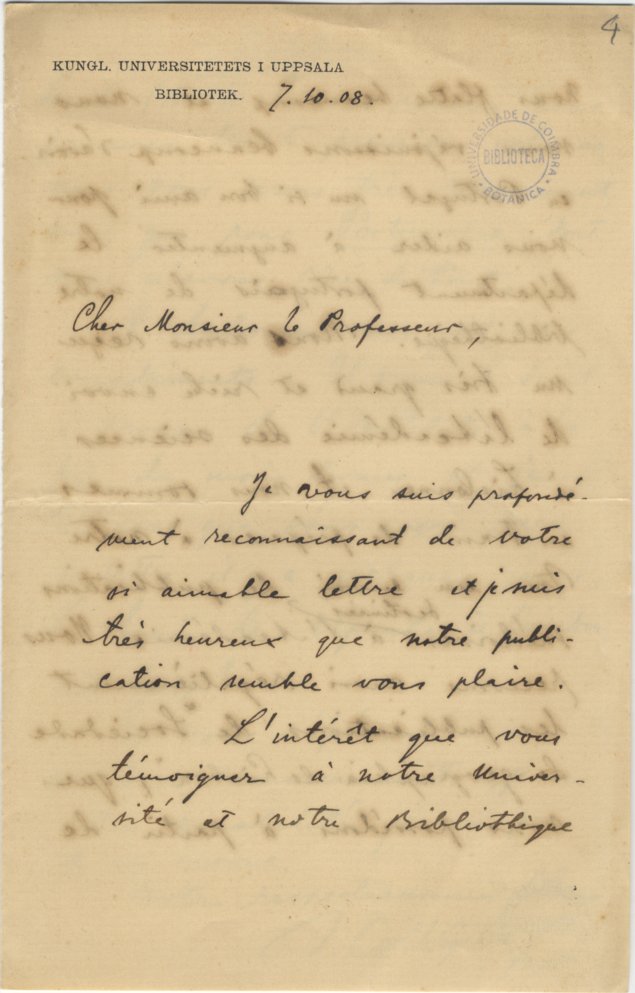 4
KUNGL. UNIVERSITETETS I UPPSALA
BIBLIOTEK. 7.10.08.
UNIVERSIDADE DE COIMBRA
BIBLIOTECA
BOTANICA
Cher Monsieur le Professeur,
Je vous suis profondé-
ment reconnaissant de votre
si aimable lettre et je suis
très heureux que notre publi-
cation semble vous plaire.
L'intérêt que vous
témoignez à notre Univer-
sité et notre Bibliothèque